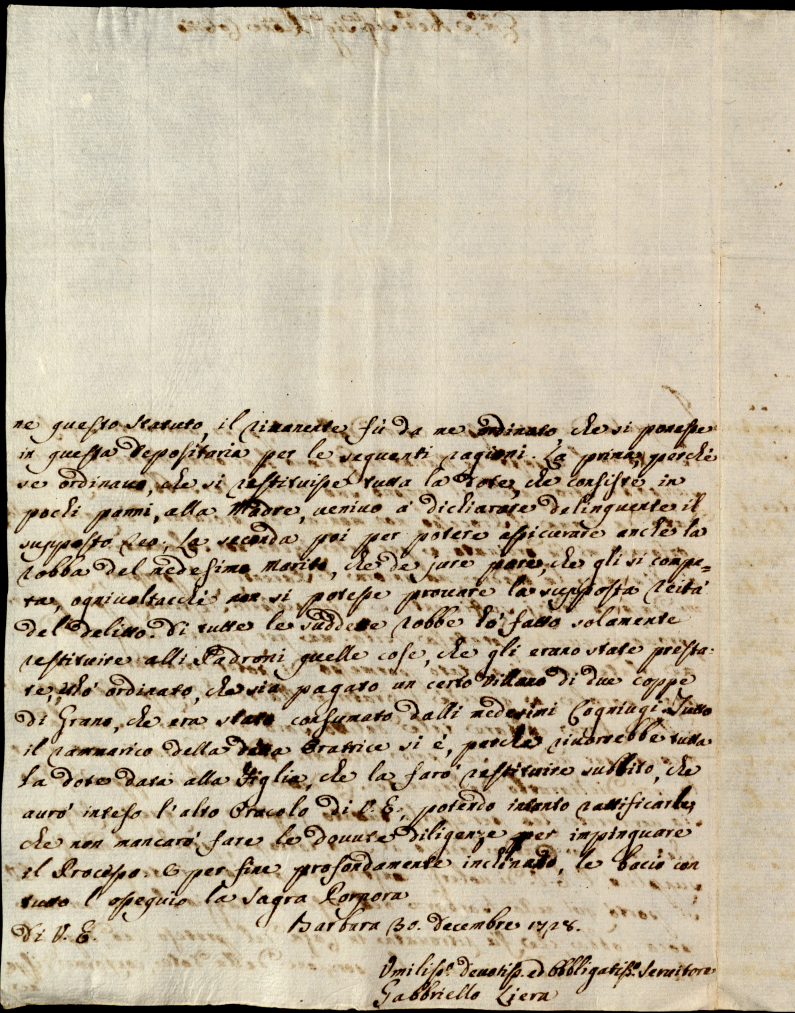 ne questo statuto, il rimanente fù da me ordinato, che si ponesse
in questa depositaria per le sequenti ragioni. La prima, perché
se ordinavo, che si restituisse tutta la dote, che consiste in
pochi panni, alla Madre, venivo a dichiarare delinquente il
supposto reo; La seconda poi per potere assicurare anche la
robba del medesimo marito, che de jure pare, che gli si compe=
ta, ogniuoltacché non si potesse provare la supposta reità
del delitto. Di tutte le suddette robbe hò fatto solamente
restituire alli Padroni quelle cose, che gli erano state presta=
te, et hò ordinato, che sia pagato un certo Villano di due coppe
di Grano, che era stato consumato dalli medesimi Cogniugi. Tutto
il rammarico della detta Oratrice si è, perché riuorrebbe tutta
la dote data alla Figlia, che la farò restituire subbito, che
aurò inteso l'alto Oracolo di V. E., potendo intanto ratificarle,
che non mancarò fare le douute diligenze per impinguare
il Processo. E per fine profondamente inclinato, le bacio con
tutto l'ossequio la Sagra Porpora
Di V. E. Barbara 30. Decembre 1728.
Umiliss.o Deuotiss. ed Obbligatiss.o Seruitore
Gabbriello Liera